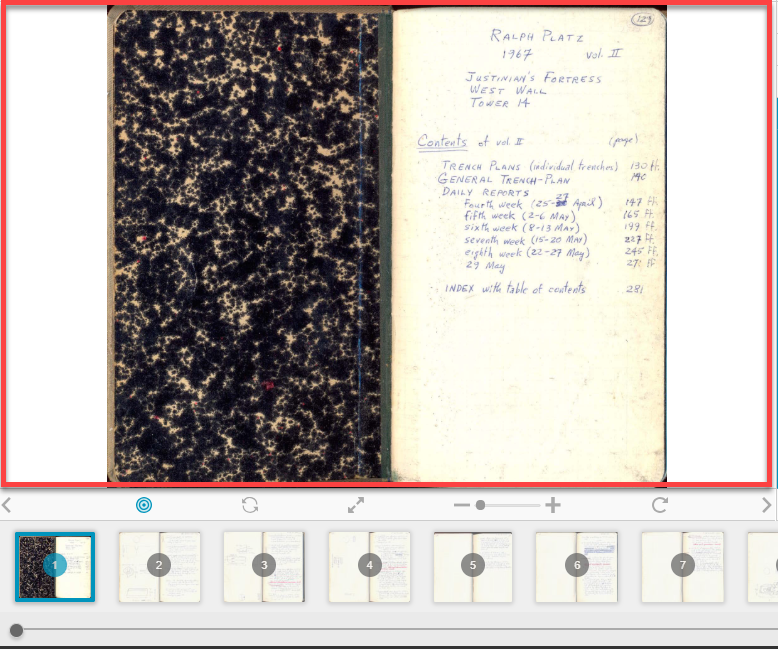 129
RALPH PLATZ
1967 vol. II
JUSTINIAN'S FORTRESS
WEST WALL
TOWER 14
Contents of vol. II (page)
TRENCH PLANS (individual trenches) 130 ff.
GENERAL TRENCH-PLAN 140
DAILY REPORTS
Fourth week (25-27 April) 147 ff.
fifth week (2-6 MAY) 165 ff.
sixth week (8-13 MAY) 199 ff.
seventh week (15-20 MAY) 227 ff.
eighth week (22-27 MAY) 245 ff.
29 May ff
INDEX with table of contents 281
1
2
3
4
5
6
7